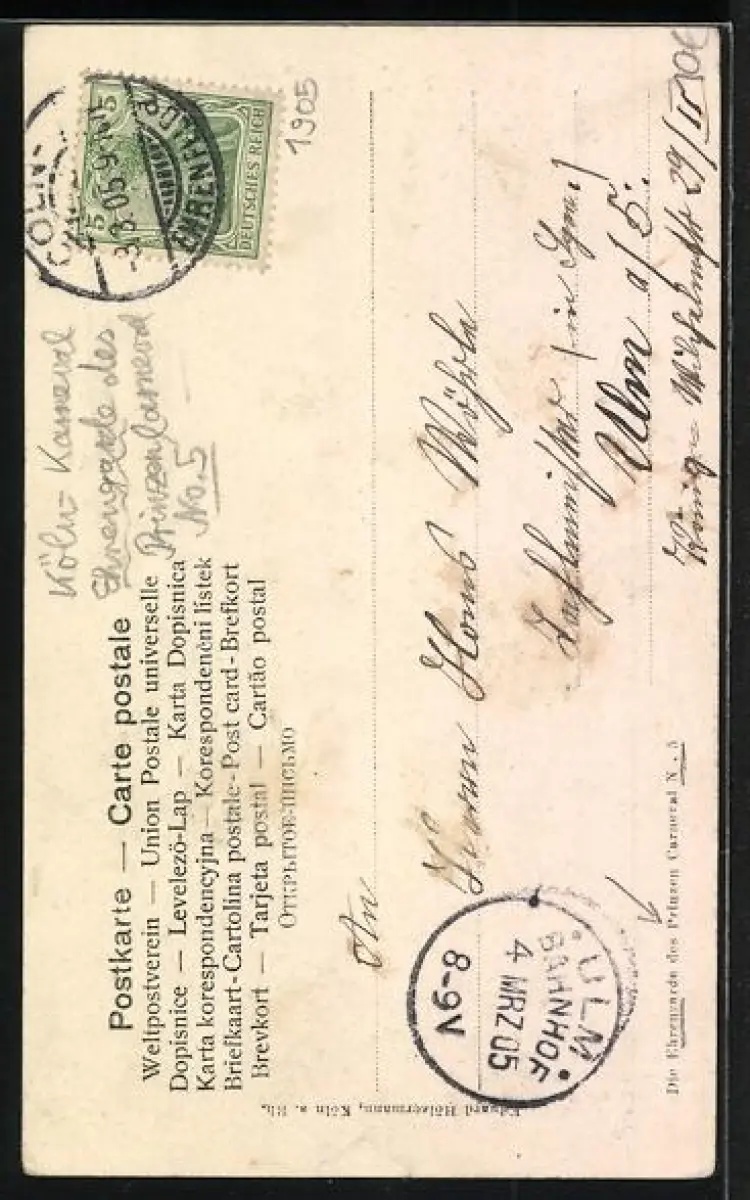 Postkarte — Carte postale
Weltpostverein — Union Postale universelle
Dopisnice — Levelezö-Lap — Karta Dopisnica
Karta korespondencyjna — Korespondenční lístek
Briefkaart-Cartolina postale-Post card-Brefkort
Brevkort — Tarjeta postal — Cartão postal
ОТКРЫТОЕ-ПИСЬМО
Köln-Karneval
Ehrengarde des
Prinzen Carneval
No. 5
5 5
DEUTSCHES REICH
CÖLN-
EHRENFELD
-3.3.05 9-
1905
An
Herrn Hans
Ulm a/D.
29/II
ULM
BAHNHOF
4 MRZ 05
8-9V
Die Ehrengarde des Prinzen Carneval N. 5
Eduard Hölzermann, Köln a. Rh.